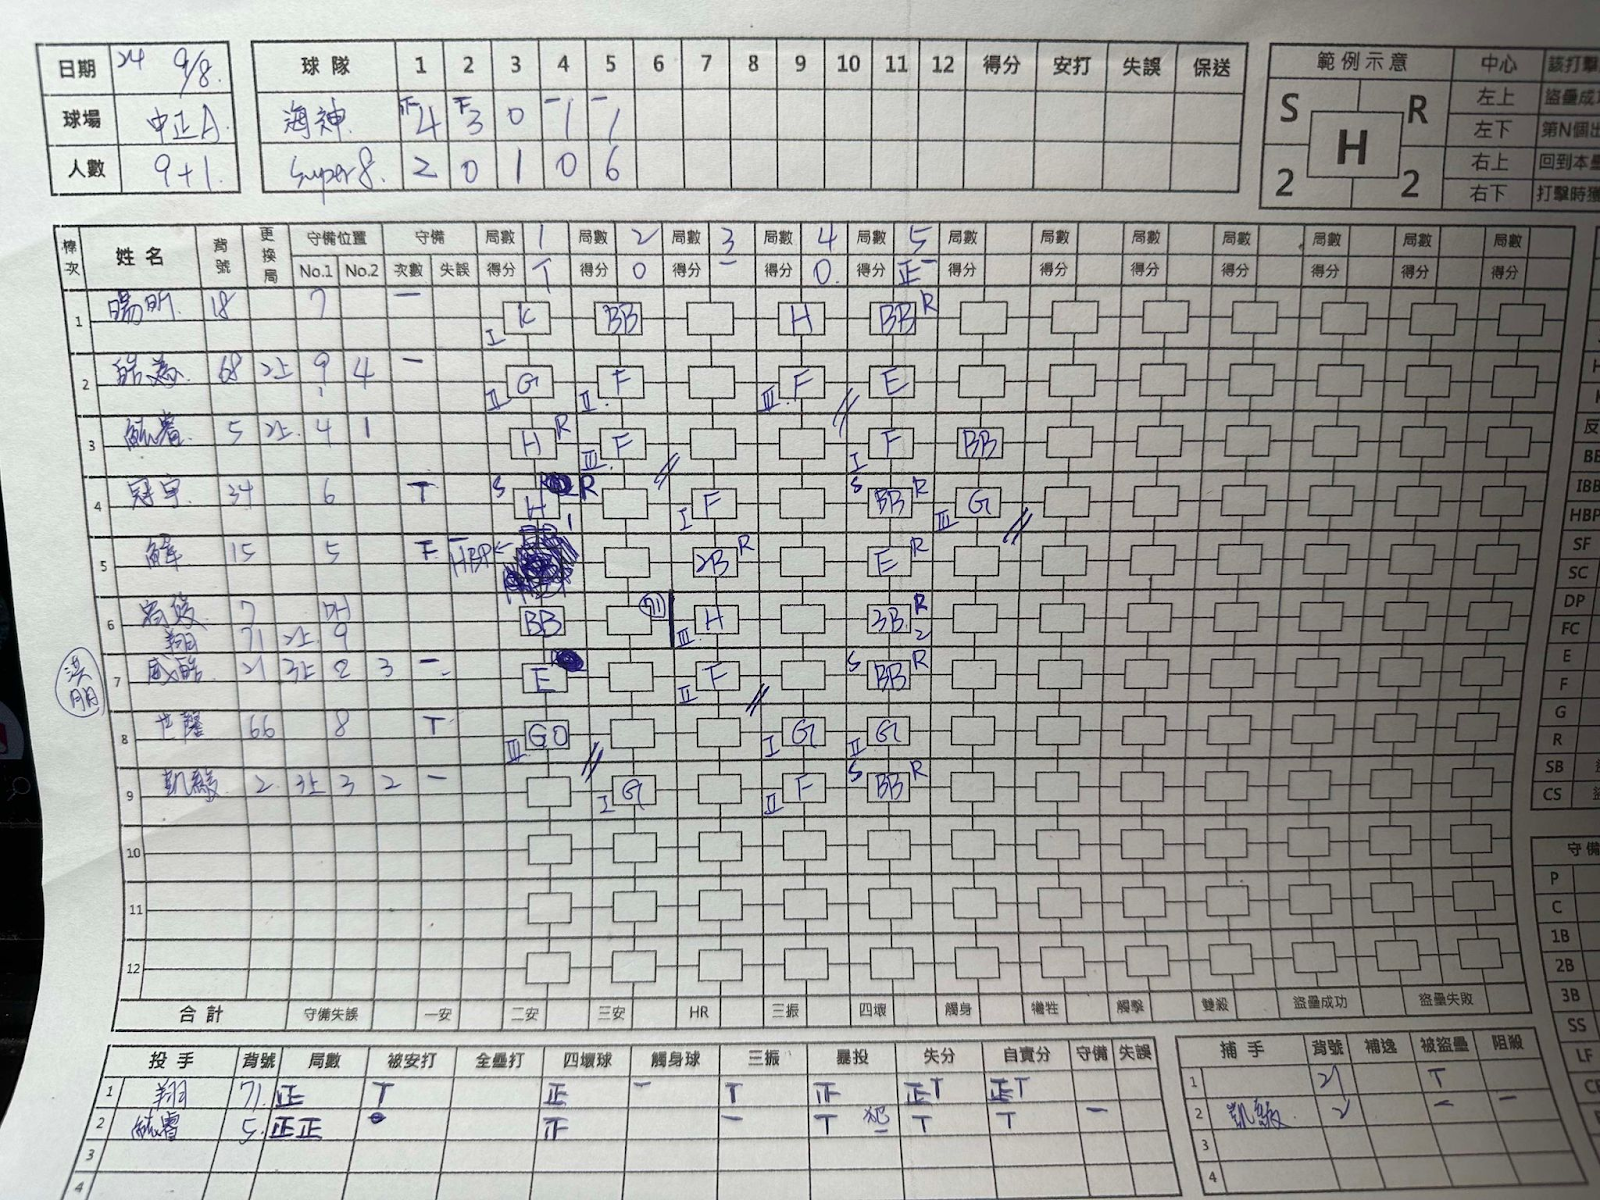 日期 24 9/8.
球場 中正A.
人數 9+1.
球隊 1 2 3 4 5 6 7 8 9 10 11 12 得分 安打 失誤 保送
海神 正4 下3 0 一1 一1
Super8. 2 0 1 0 6
範例示意 中心 該打擊
S R 左上 盜壘成功
H 左下 第N個出
右上 回到本壘
2 2 右下 打擊時獲
棒次 姓名 背號 更換局 守備位置 守備 局數 1 局數 2 局數 3 局數 4 局數 5 局數 局數 局數 局數 局數 局數 局數
No.1 No.2 次數 失誤 得分 T 得分 0 得分 一 得分 0. 得分 正一 得分 得分 得分 得分 得分 得分 得分
1 18 7 一 K I BB H BB R
2 68 2上 9 4 一 G II F II. F III. E
3 5 2上. 4 1 H R F III. F I BB
4 冠宇 34 6 T S H R F I S BB R G III
5 15 5 下 一 HBP← BB 1 2B R E R
6 7 DH BB 71 H III. 3B. R 2
翔 71 2上 9
7 21 3上 2 3 一 E F II S BB R
8 66 8 T GO III G I G II
9 凱 2 3上 3 2 一 G I F II S BB R
10
11
12
合計 守備失誤 一安 二安 三安 HR 三振 四壞 觸身 犧牲 觸擊 雙殺 盜壘成功 盜壘失敗
BB
IBB
HBP
SF
SC
DP
FC
E
F
G
R
SB
CS
守備
P
C
1B
2B
3B
SS
LF
投手 背號 局數 被安打 全壘打 四壞球 觸身球 三振 暴投 失分 自責分 守備 失誤
1 翔 71. 正 T 正 一 T 正 正T 正T
2 5. 正正 正 一 T T T 一
3
4
捕手 背號 補逸 被盜壘 阻殺
1 21 T
2 凱 2 一 一
3
4